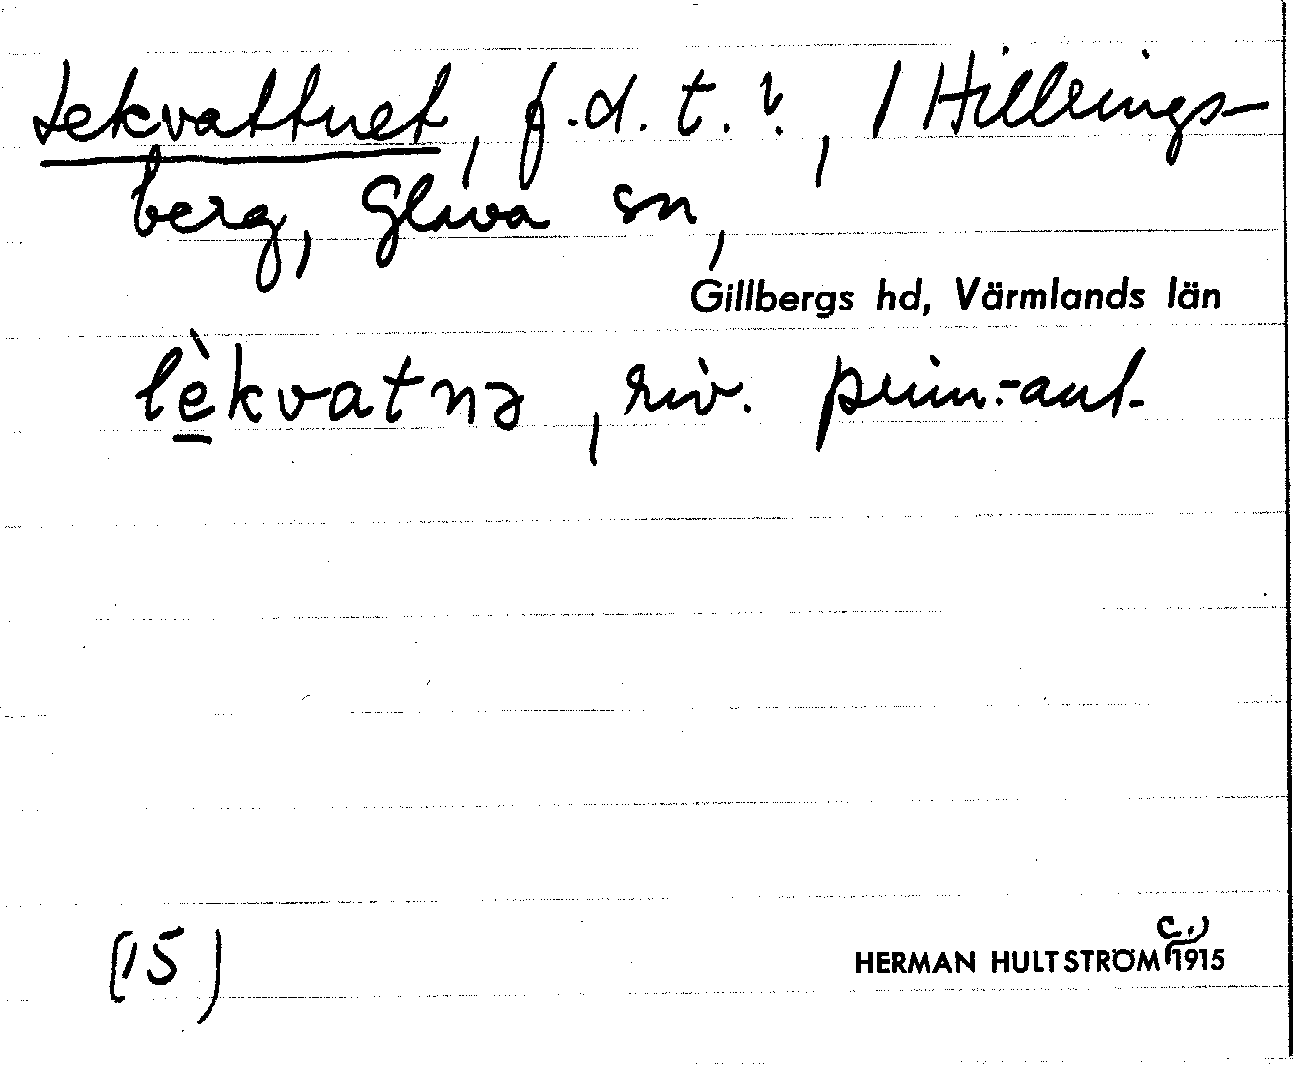 Lekvattnet, f.d. t.?, / Hillrings-
berg, Glava sn,
Gillbergs hd, Värmlands län
lèkvatnə, riv. prim.-ant.
(15)
HERMAN HULTSTRÖM (c.) 1915